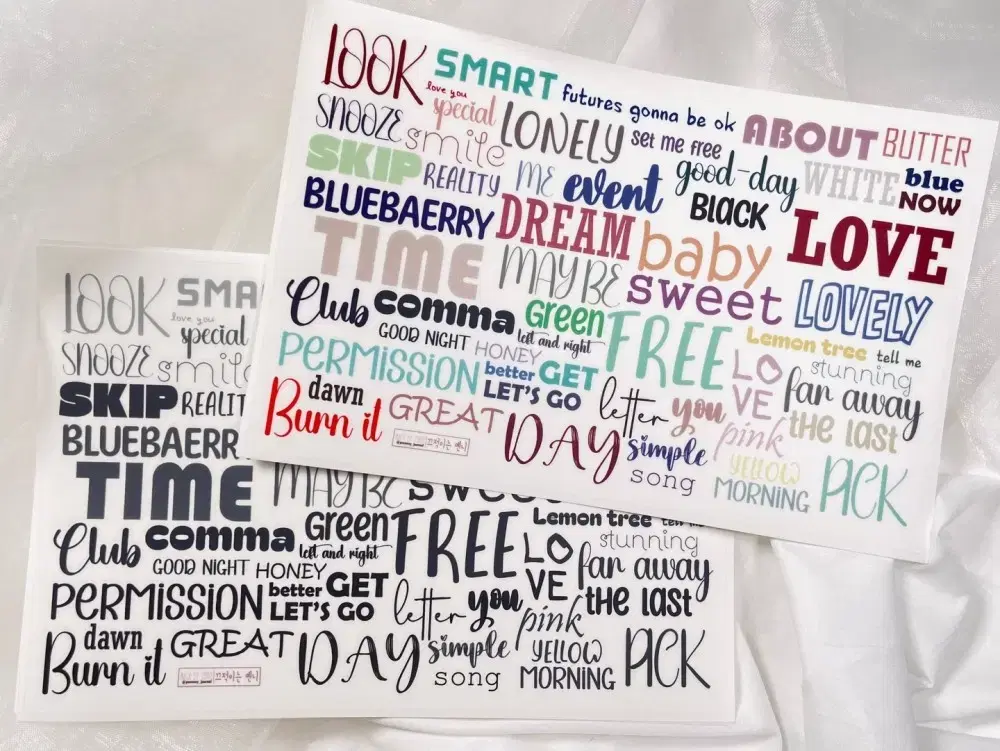 LOOK SMART futures gonna be ok ABOUT BUTTER
love you special LONELY set me free
SNOOZE smile good-day WHITE blue
SKIP REALITY ME event BLACK NOW
BLUEBAERRY DREAM baby LOVE
TIME MAYBE sweet LOVELY
Club comma Green FREE Lemon tree tell me
GOOD NIGHT HONEY left and right LO stunning
PERMISSION better GET VE far away
LET'S GO
dawn letter you the last
Burn it GREAT DAY simple pink
끄적이는 앤니 song YELLOW PICK
MORNING
LOOK SMA
love you special
SNOOZE smile
SKIP REALIT
BLUEBAERR
TIME MAYBE sweet
Club comma Green FREE Lemon tree tell me
GOOD NIGHT HONEY left and right LO stunning
PERMISSION better GET VE far away
LET'S GO letter you the last
dawn GREAT DAY simple pink
Burn it song YELLOW PICK
끄적이는 앤니 MORNING